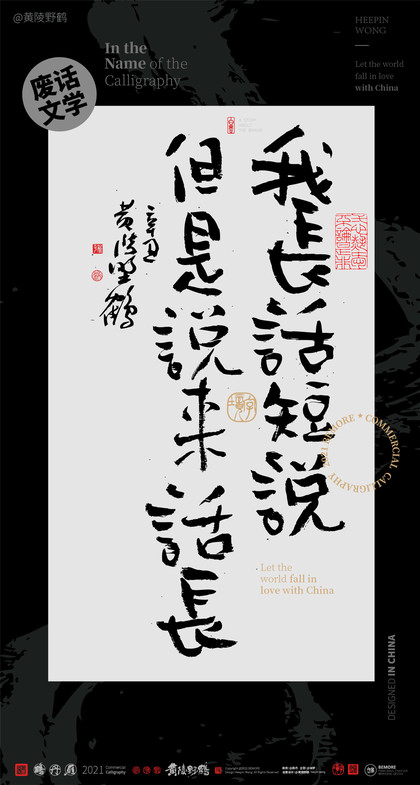 @黄陵野鹤
HEEPIN
WONG
In the
Name of the
Calligraphy
Let the world
fall in love
with China
废话
文学
我長話短説
但是説来話長
辛丑
黄陵野鶴
COMMERCIAL CALLIGRAPHY
BEMORE
Let the
world fall in
love with China
DESIGNED IN CHINA
2021
Commercial
Calligraphy
黄陵野鹤
BEMORE